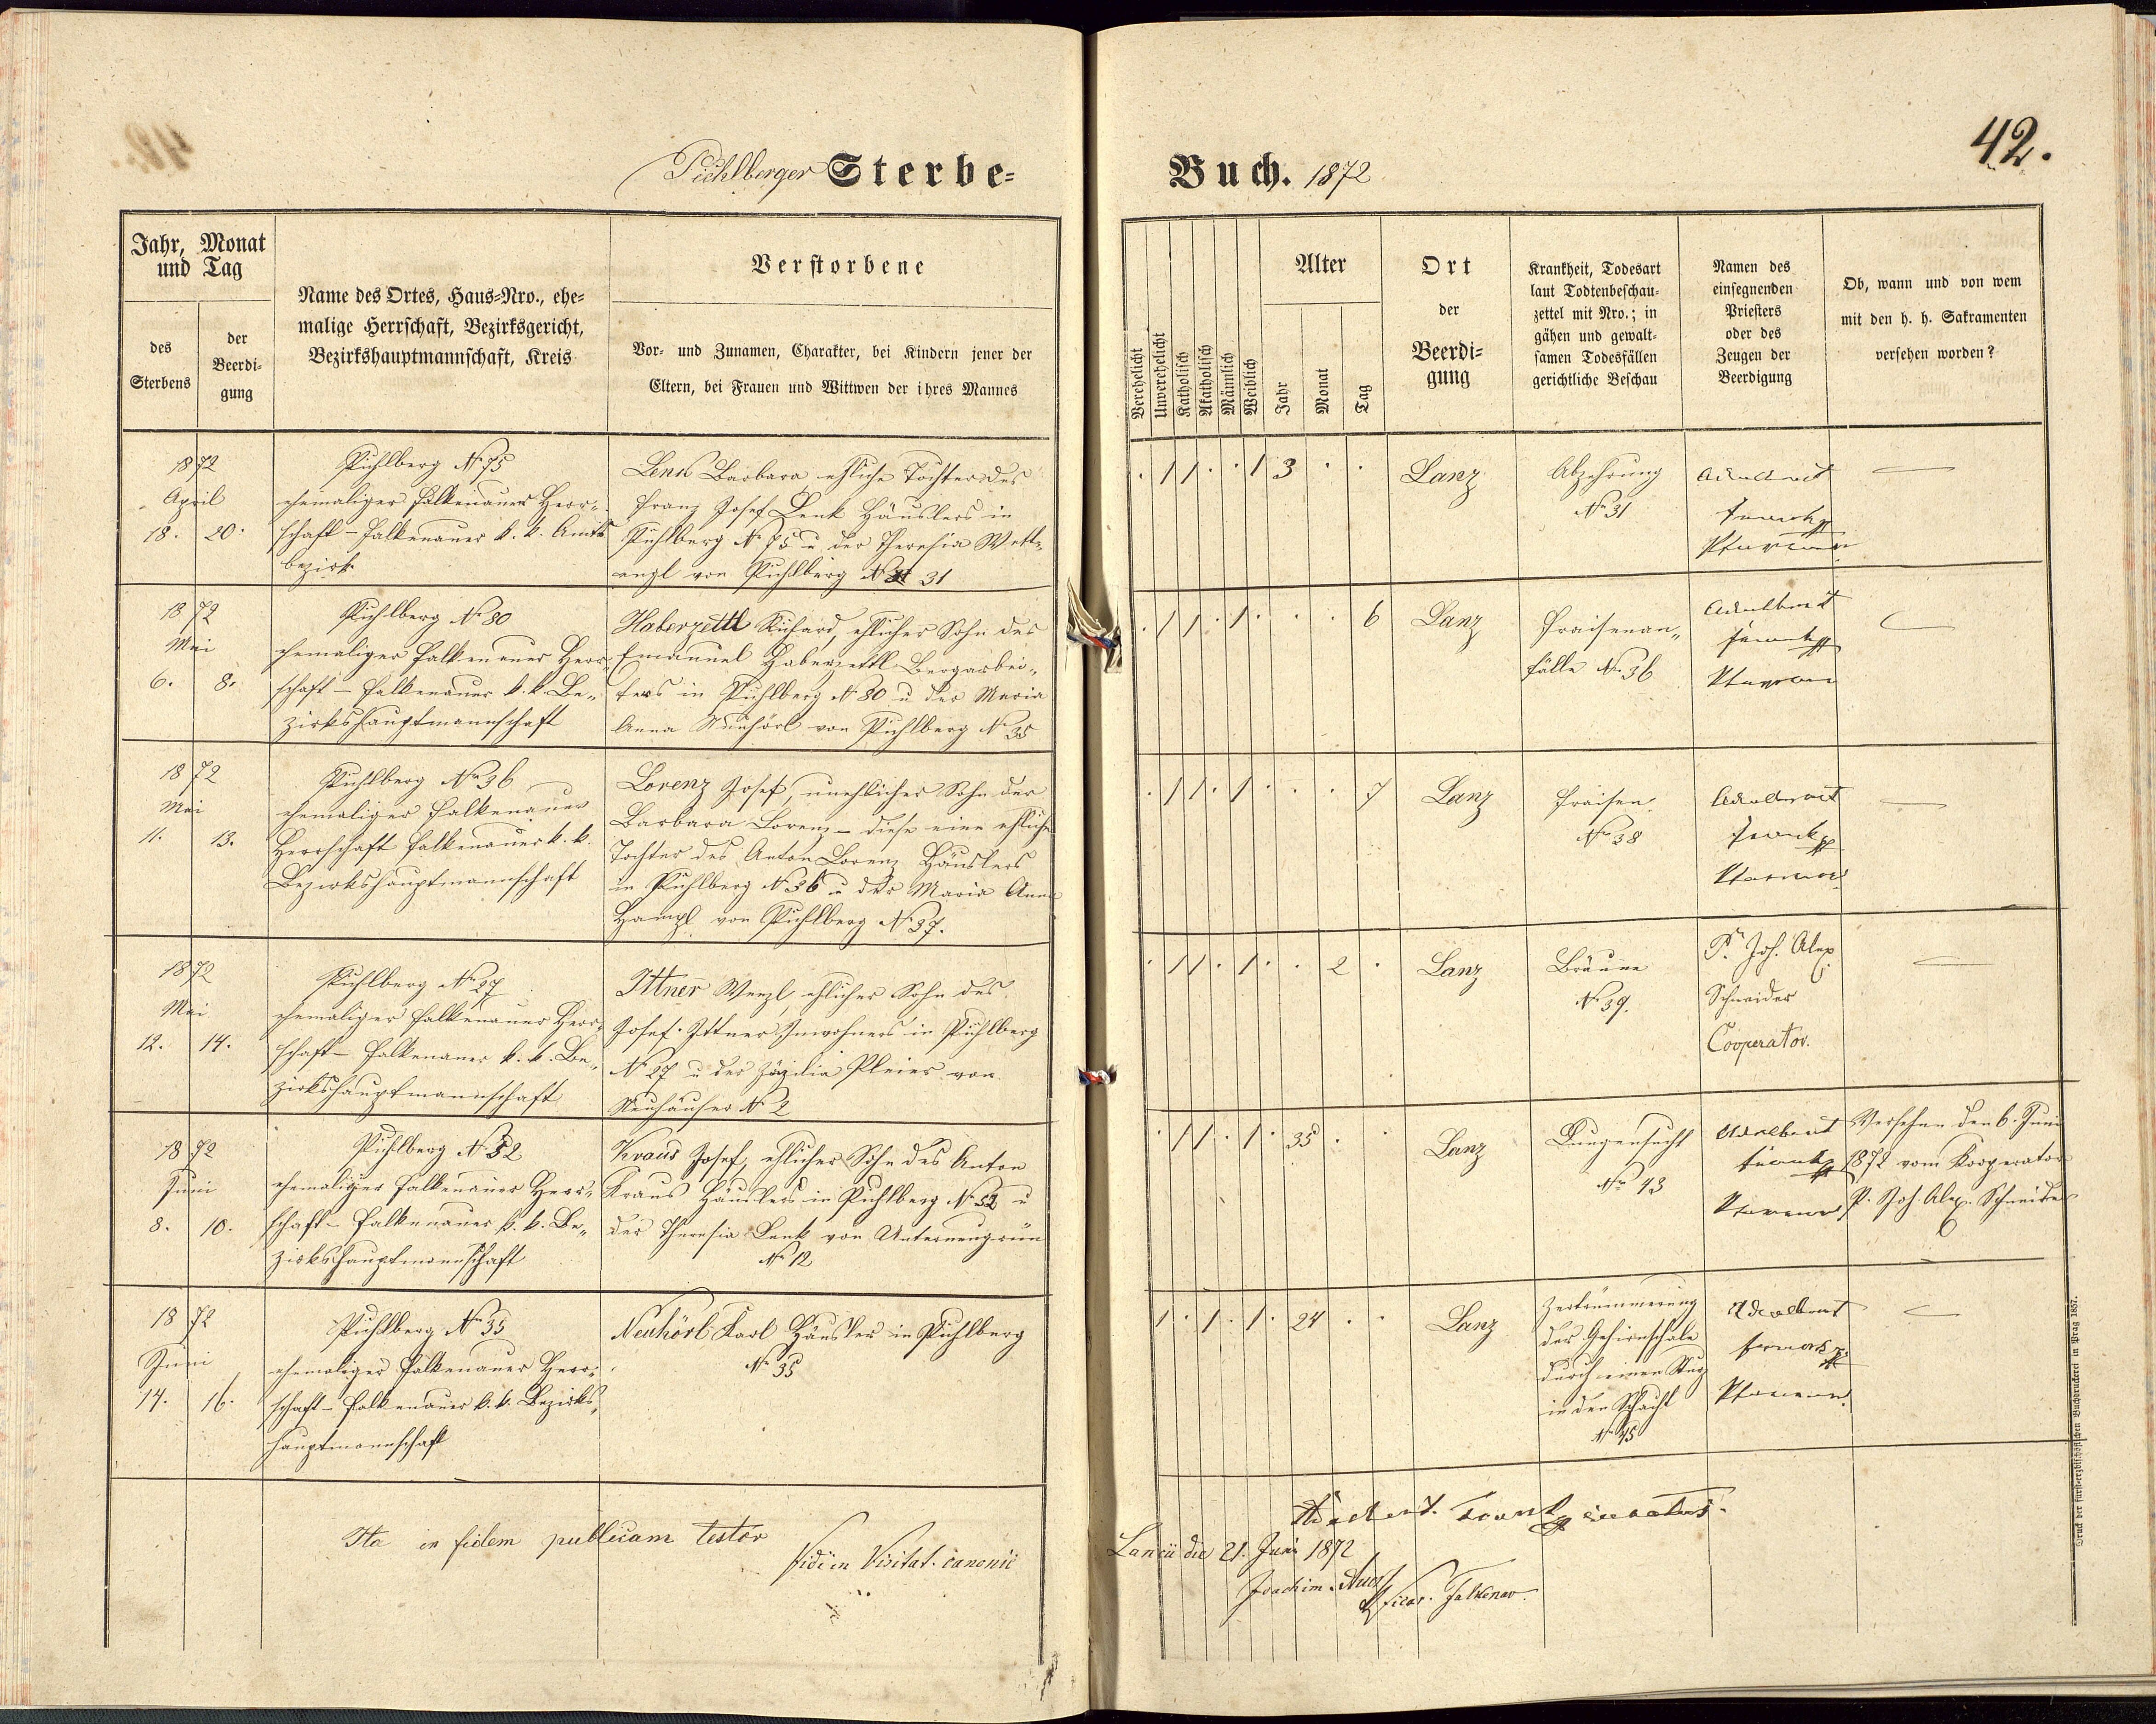 42.
Pichlberger Sterbe=
Buch. 1872
Jahr, Monat
und Tag
des
Sterbens
der
Beerdi=
gung
Name des Ortes, Haus=Nro., ehe=
malige Herrschaft, Bezirksgericht,
Bezirkshauptmannschaft, Kreis
Verstorbene
Vor= und Zunamen, Charakter, bei Kindern jener der
Eltern, bei Frauen und Wittwen der ihres Mannes
Verehelicht
Unverehelicht
Katholisch
Akatholisch
Männlich
Weiblich
Alter
Jahr
Monat
Tag
Ort
der
Beerdi=
gung
Krankheit, Todesart
laut Todtenbeschau=
zettel mit Nro.; in
gähen und gewalt=
samen Todesfällen
gerichtliche Beschau
Namen des
einsegnenden
Priesters
oder des
Zeugen der
Beerdigung
Ob, wann und von wem
mit den h. h. Sakramenten
versehen worden?
1872
April
18. 20.
Pichlberg No 75
ehemaliger Falkenauer Herr=
schaft – Falkenauer k. k. Amts
bezirk
Lenk Barbara ehliche Tochter des
Franz Josef Lenk Häuslers in
Pichlberg No 75 u der Theresia Wett=
engl von Pichlberg No 31
1 1 1 3
Lanz
Abzehrung
No 31
Adalbert
Pfarrer
1872
Mai
6. 8.
Pichlberg No 80
ehemaliger Falkenauer Herr=
schaft – Falkenauer k. k. Be=
zirkshauptmannschaft
Haberzettl Richard, ehlicher Sohn des
Emanuel Haberzettl Bergarbei=
ters in Pichlberg No 80 u der Maria
Anna Neuhörl von Pichlberg No 35
1 1 1 6
Lanz
Fraisenan=
fälle No 36
Adalbert
Pfarrer
1872
Mai
11. 13.
Pichlberg No 36
ehemaliger Falkenauer
Herrschaft Falkenauer k. k.
Bezirkshauptmannschaft
Lorenz Josef, unehlicher Sohn der
Barbara Lorenz – diese eine ehliche
Tochter des Anton Lorenz Häuslers
in Pichlberg No 36 u der Maria Anna
Hampl von Pichlberg No 37.
1 1 1 7
Lanz
Fraisen
No 38
Adalbert
Pfarrer
1872
Mai
12. 14.
Pichlberg No 27
ehemaliger Falkenauer Herr=
schaft – Falkenauer k. k. Be=
zirkshauptmannschaft
Ittner Wenzl, ehlicher Sohn des
Josef Ittner Inwohners in Pichlberg
No 27 u der Zäzilia Pleier von
Neuhäuser No 2
1 1 1 2
Lanz
Bräune
No 39.
P. Joh. Alex.
Schneider
Cooperator.
1872
Juni
8. 10.
Pichlberg No 52
ehemaliger Falkenauer Herr=
schaft – Falkenauer k. k. Be=
zirkshauptmannschaft
Kraus Josef, ehlicher Sohn des Anton
Kraus Häuslers in Pichlberg No 52 u
der Theresia Lenk von Unterneugrün
No 12
1 1 1 35
Lanz
Lungensucht
No 43
Adalbert
Pfarrer
Versehen den 6. Juni
1872 vom Kooperator
P. Joh. Alex. Schneider
1872
Juni
14. 16.
Pichlberg No 35
ehemaliger Falkenauer Herr=
schaft – Falkenauer k. k. Bezirks=
hauptmannschaft
Neuhörl Karl Häusler in Pichlberg
No 35
1 1 1 24
Lanz
Zertrümmerung
der Gehirnschale
durch einen Sturz
in den Schacht
No 45
Adalbert
Pfarrer.
Ita in fidem publicam testor
Vidi in Visitat. canonic
Lancii die 21. Juni 1872
Joachim
Vicar. Falkenav.
Druck der fürsterzbischöflichen Buchdruckerei in Prag 1857.